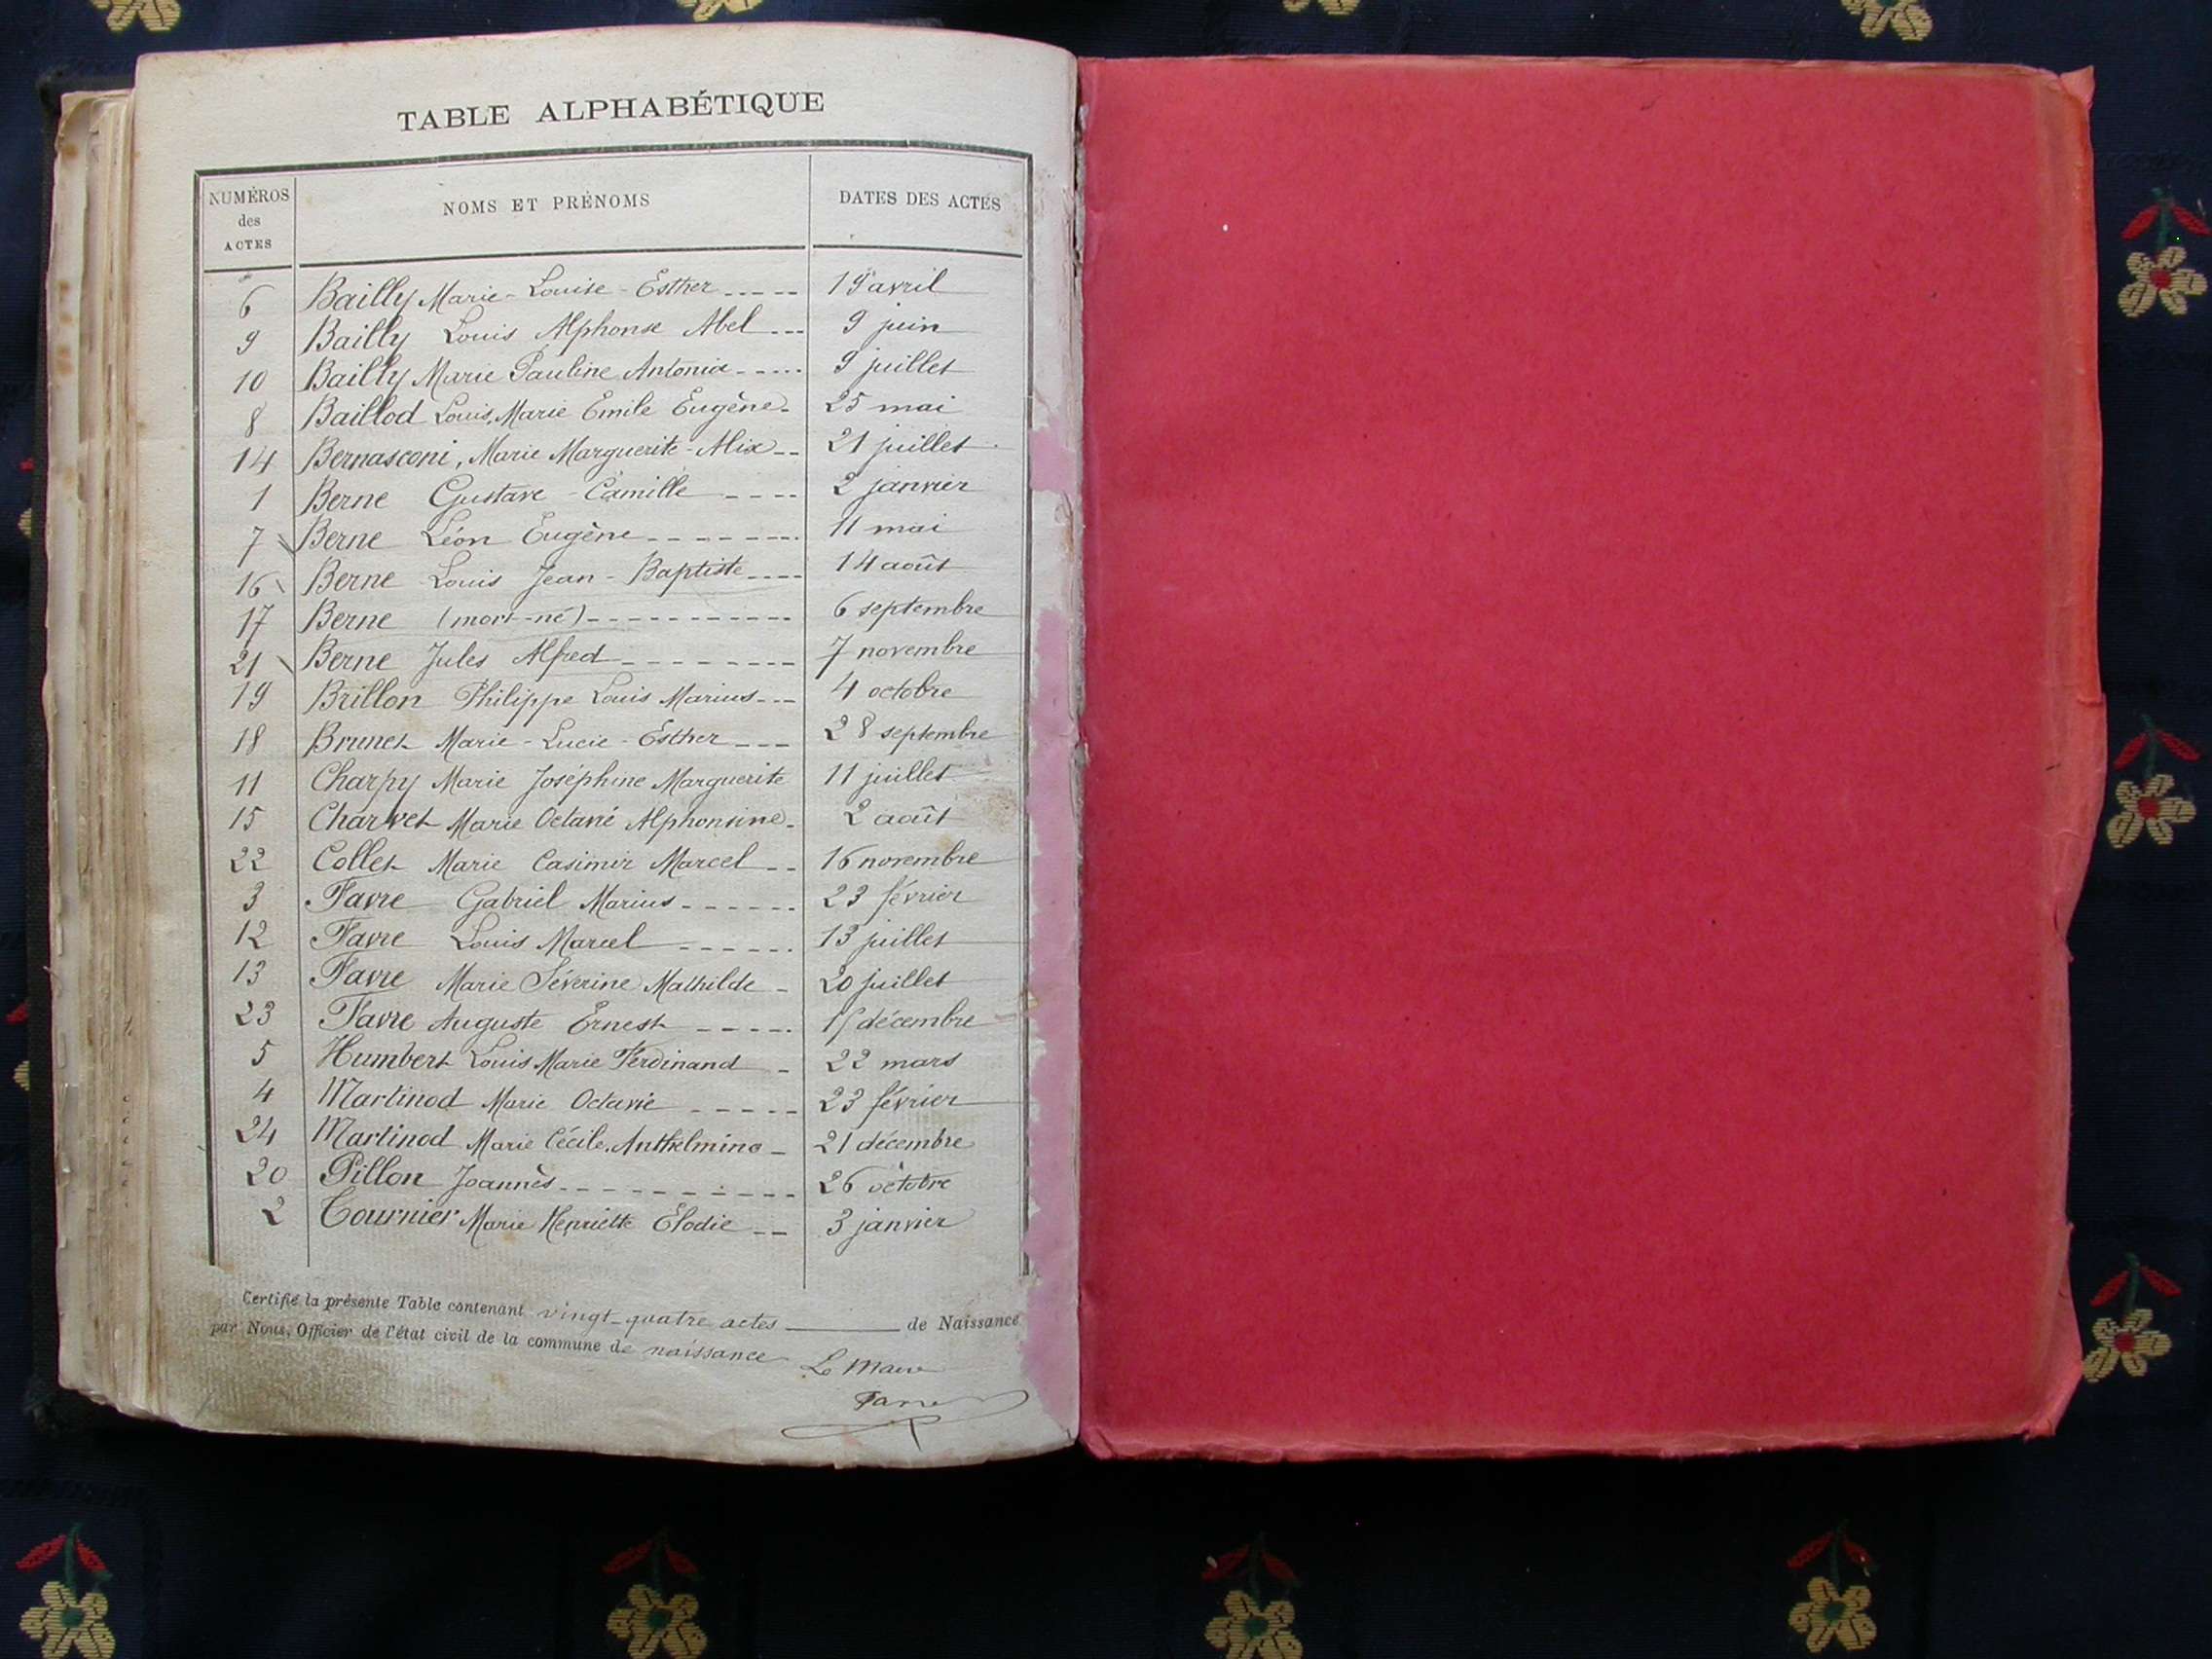 TABLE ALPHABÉTIQUE
NUMÉROS des ACTES NOMS ET PRÉNOMS DATES DES ACTES
6 Bailly Marie-Louise-Esther ----- 19 avril
9 Bailly Louis Alphonse Abel --- 9 juin
10 Bailly Marie Pauline Antonia ----- 9 juillet
8 Baillod Louis, Marie Emile Eugène - 25 mai
14 Bernasconi, Marie Marguerite-Alix -- 21 juillet
1 Berne Gustave-Camille ---- 2 janvier
7 Berne Léon Eugène -------- 11 mai
16 Berne Louis Jean-Baptiste ---- 14 août
17 Berne (mort-né) ----------- 6 septembre
21 Berne Jules Alfred -------- 7 novembre
19 Brillon Philippe Louis Marius --- 4 octobre
18 Brunet Marie-Lucie-Esther --- 28 septembre
11 Charpy Marie Joséphine Marguerite 11 juillet
15 Charvet Marie Octavie Alphonsine - 2 août
22 Collet Marie Casimir Marcel -- 16 novembre
3 Favre Gabriel Marius ------ 23 février
12 Favre Louis Marcel ------ 13 juillet
13 Favre Marie Séverine Mathilde - 20 juillet
23 Favre Auguste Ernest ----- décembre
5 Humbert Louis Marie Ferdinand - 22 mars
4 Martinod Marie Octavie ----- 23 février
24 Martinod Marie Cécile, Anthelmine - 21 décembre
20 Pillon Joannès ---------- 26 octobre
2 Tournier Marie Henriette Élodie -- 3 janvier
Certifié la présente Table contenant vingt-quatre actes de Naissance
par Nous, Officier de l'état civil de la commune de naissance
Le Maire
Favre